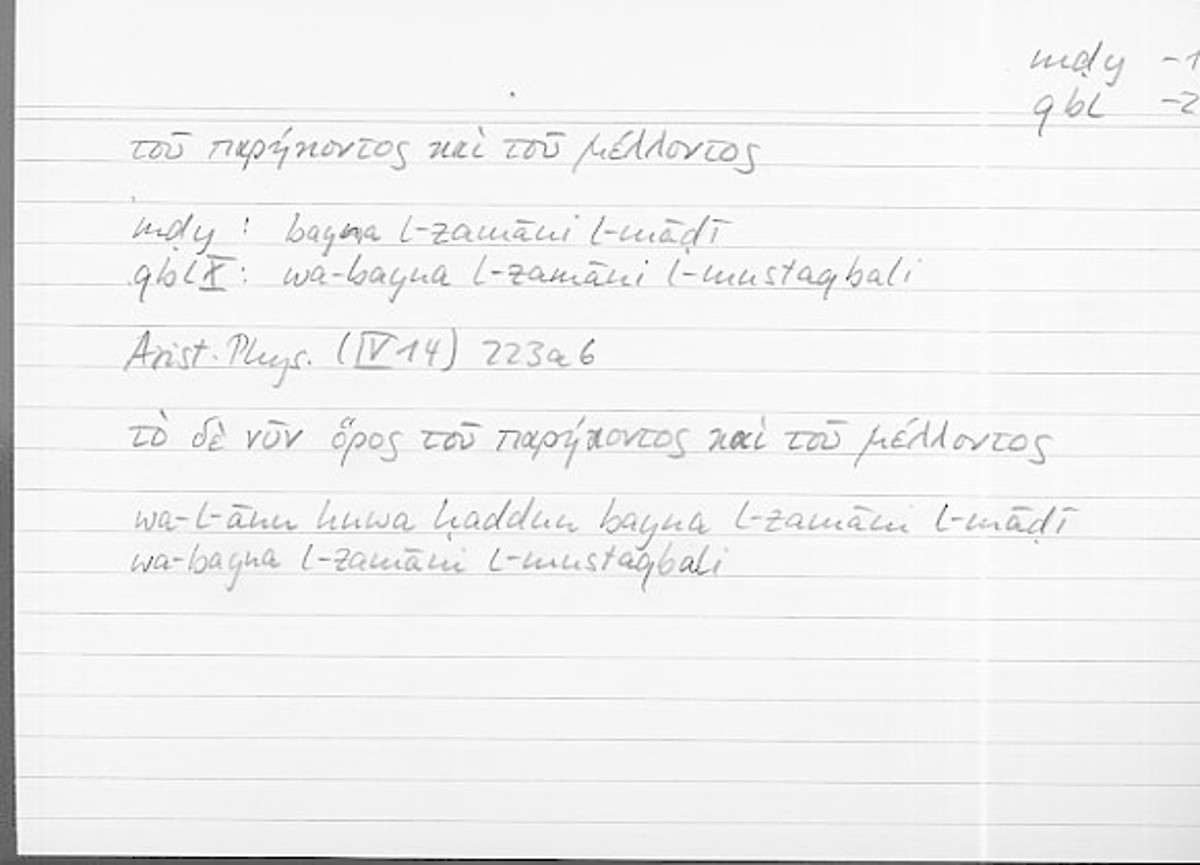 mḍy -1
qbl -2
τοῦ παρήκοντος καὶ τοῦ μέλλοντος
mḍy : bayna l-zamāni l-māḍī
qbl X : wa-bayna l-zamāni l-mustaqbali
Arist. Phys. (IV 14) 223a6
τὸ δὲ νῦν ὅρος τοῦ παρήκοντος καὶ τοῦ μέλλοντος
wa-l-ānu huwa ḥaddun bayna l-zamāni l-māḍī
wa-bayna l-zamāni l-mustaqbali